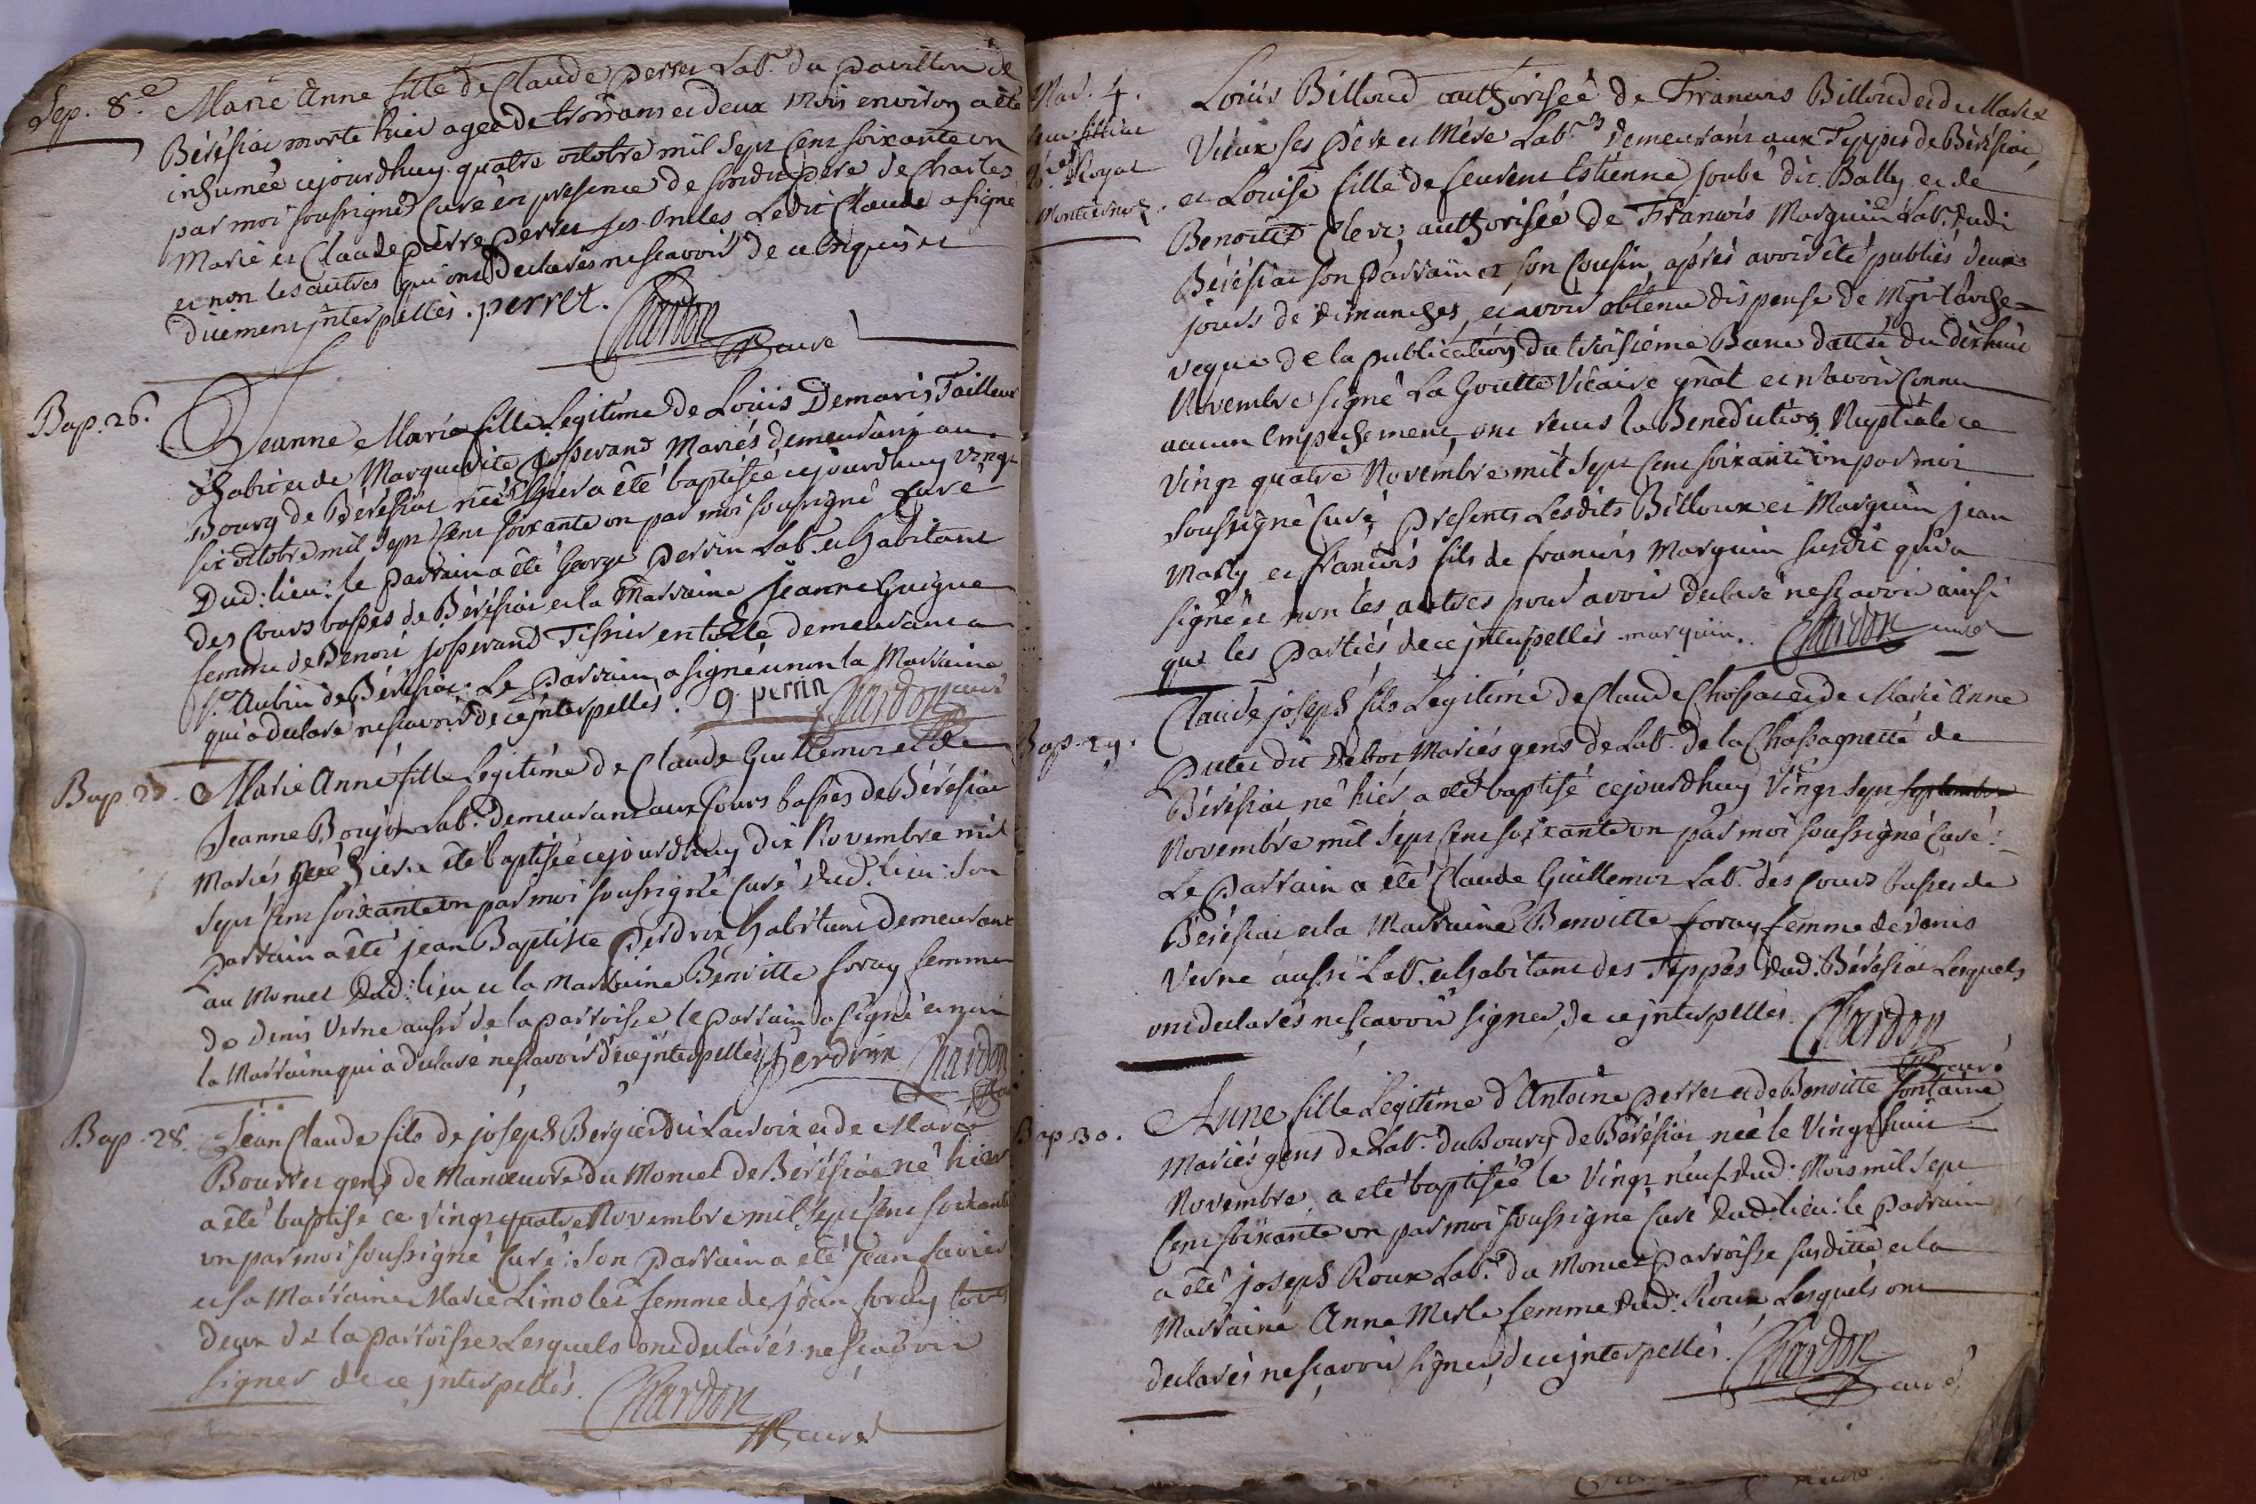 Sep. 8.e Marie Anne fille de Claude Perret Lab.r du pavillon de
Bérésiat morte hier agée de trois ans et deux mois environ a été
inhumée cejourdhuy quatre octobre mil sept cent soixante un
par moi soussigné Curé en presence de sondit père de Charles
Marie et Claude pierre perret ses oncles Ledit Claude a signé
et non les autres qui ont declarés ne scavoir de ce enquis et
duement jnterpellés. perret. Chardon
curé
Bap. 26. Jeanne Marie fille Legitime de Louis Demaris Tailleur
d'habit et de Marguerite Josserand Mariés demeurant au
Bourg de Bérésiat née hier a été baptisée cejourdhuy vingt
six octobre mil sept cent soixante un par moi soussigné Curé
Dud: lieu: le parrain a été George Perrin Lab.r et habitant
des Cours basses de Bérésiat et la Marraine Jeanne Guigue
femme de Benoi Josserand Tissier en toile demeurant a
s.t Aubin de Bérésiat: Le parrain a signé et non la Marraine
qui a declaré ne scavoir de ce jnterpellés. g perrin Chardon curé
Bap. 27. Marie Anne fille Legitime de Claude Guillemot et de
Jeanne Boujon Lab.r demeurant aux Cours basses de Bérésiat
Mariés née hier a été baptisée cejourdhuy dix Novembre mil
sept cent soixante un par moi soussigné Curé dud. lieu: son
parrain a été jean Baptiste Perdrix habitant demeurant
au Moncet dud: lieu et la Marraine Benoitte foray femme
de denis Verne aussi de la parroisse le parrain a signé et non
la Marraine qui a declaré ne scavoir de ce jnterpellés Perdrix Chardon
Bap. 28. Jean Claude fils de joseph Bergier dit Lacroix et de Marie
Bourret gens de Manœuvre du Moncet de Bérésiat né hier
a été baptisé ce vingt quatre Novembre mil sept cent soixante
un par moi soussigné Curé: son parrain a été jean
et sa Marraine Marie Limolet femme de jean foray tous
deux de la parroisse Lesquels ont declarés ne scavoir
signer de ce jnterpellés. Chardon
curé
Mar. 4. Louis Billoud authorisé de Francois Billoud et de Marie
Vieux ses père et Mère Lab.rs demeurant aux Teppes de Bérésiat
et Louise fille de feu Etienne dit Bally et de
Benoitte Clerc, authorisée de Francois Marguin Lab.r dudi
Bérésiat son parrain et son Cousin, après avoir été publiés deux
jours de dimanches, et avoir obtenu dispense de Mgr l'arche=
veque de la publication du troisième Banc dattée du dixhuit
Novembre signé La Goutte Vicaire gnâl et n'avoir connu
aucun empechement ont reçus la Benediction Nuptiale ce
vingt quatre Novembre mil sept cent soixante un par moi
soussigné Curé, presents Lesdits Billoux et Marguin jean
Marly et francois fils de francois Marguin susdit qui a
signé et non les autres pour avoir declaré ne scavoir ainsi
que les parties de ce jnterpellés. marguin. Chardon curé
Bap. 29. Claude joseph fils Legitime de Claude Chossat et de Marie Anne
Putet dit Mariés gens de Lab.r de la Chassagnette de
Bérésiat né hier a été baptisé cejourdhuy Vingt sept septembre
Novembre mil sept cent soixante un par moi soussigné Curé:
Le parrain a été Claude Guillemot Lab.r des Cours basses de
Bérésiat et la Marraine Benoitte foray femme de denis
Verne aussi Lab.r et habitant des Teppes dud: Bérésiat Lesquels
ont declarés ne scavoir signer, de ce jnterpellés. Chardon
curé
Bap. 30. Anne fille Legitime d'Antoine perret et de Benoitte fontaine
Mariés gens de Lab.r du Bourg de Bérésiat née le vingt huit
Novembre, a été baptisée le vingt neuf dud: Mois mil sept
cent soixante un par moi soussigné Curé dud: lieu: le parrain
a été joseph Roux Lab.r du Moncet parroisse susditte et la
Marraine Anne Merle femme dud: Roux Lesquels ont
declarés ne scavoir signer, de ce jnterpellés. Chardon
curé